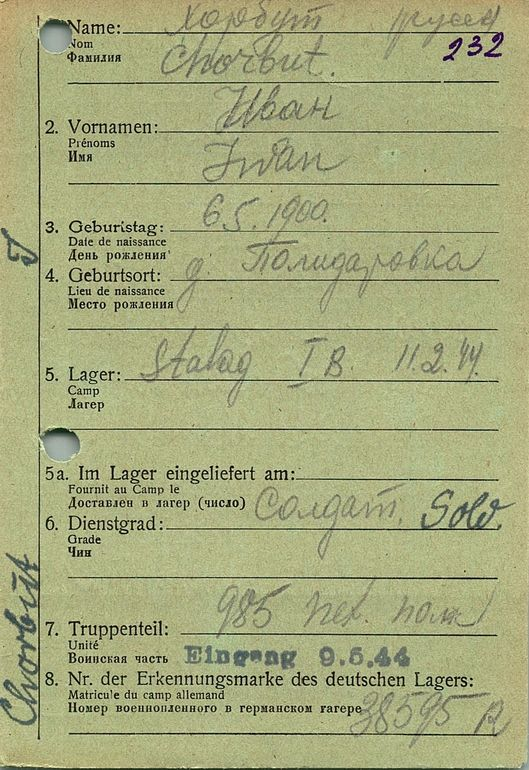 Name: Хорбут русск
232
Nom
Фамилия
Chorbut.
Иван
2. Vornamen:
Prénoms
Имя
Iwan
3. Geburtstag: 6.5.1900.
Date de naissance
День рождения
4. Geburtsort: д. Полидаровка
Lieu de naissance
Место рождения
5. Lager: Stalag I B. 11.2.44.
Camp
Лагер
5a. Im Lager eingeliefert am:
Fournit au Camp le
Доставлен в лагер (число)
6. Dienstgrad: Солдат. Sold.
Grade
Чин
985 пех. полк
7. Truppenteil:
Unité
Воинская часть Eingang 9.5.44
8. Nr. der Erkennungsmarke des deutschen Lagers:
Matricule du camp allemand
Номер военнопленного в германском лагере 38595
Chorbut